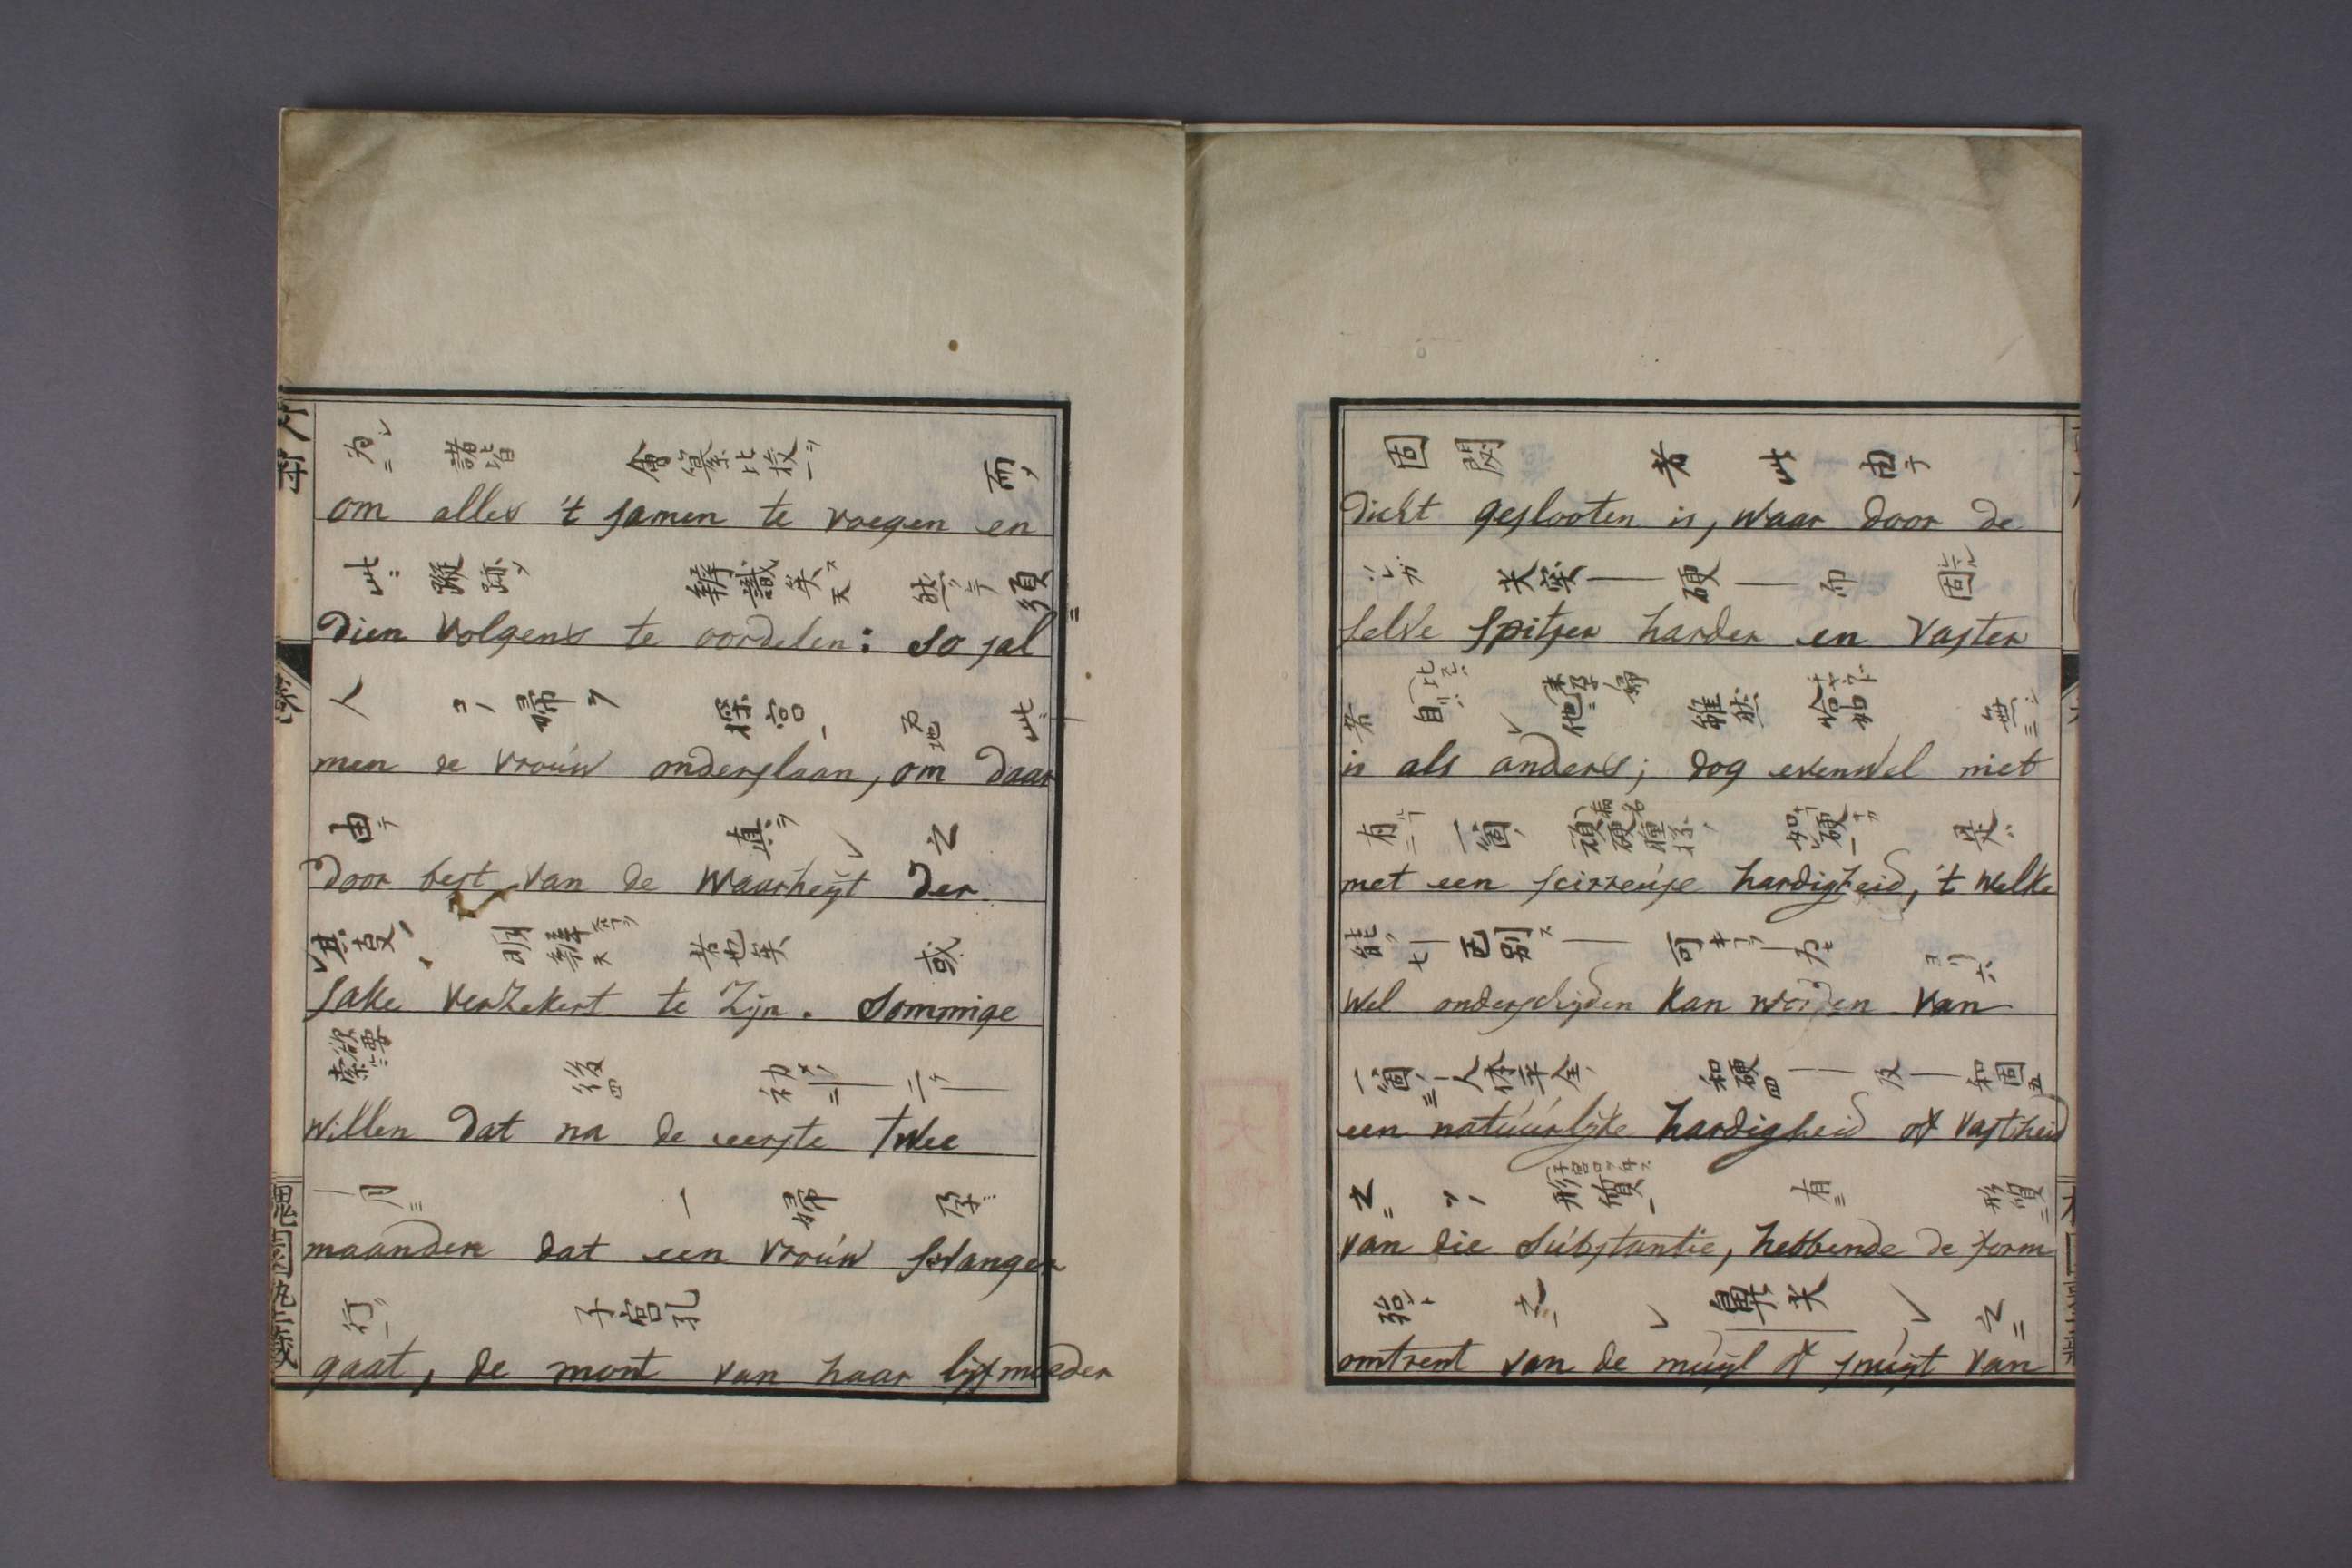 為 諸皆 會篡比挍 而
om alles 't samen te voegen en
此 蹤跡 辨識矣 然 須
dien volgens te oordelen: so sal
人 婦 探宮 為 此
men de vrouw onderslaan, om daar
由 真 之
door best van de waarheyt der
其事 明辨 者也矣 或
sake verzekert te Zijn. Sommige
索欲要 後 初 二
willen dat na de eerste twee
月 一 婦 孕
maanden dat een vrouw swanger
行 子宮孔
gaat, de mont van haar lijfmoeder
固 閉 者 此 由
dicht geslooten is, waar door de
尖 硬 而 固
selve spitser harder en vaster
者 自 比 他 婦 雖然 恰如 無
is als anders; dog evenwel niet
有 一箇 頑硬腫 如硬 是
met een scirreuse hardigheid, 't welke
能 別 可 為
wel onderscheyden kan worden van
一箇 人体平全 和硬 及 和固
een natuurlijke hardigheid of vastheid
之 形質 有 形質
van die substantie, hebbende de form
殆 之 鼻尖 之
omtrent van de muyl of snuyt van